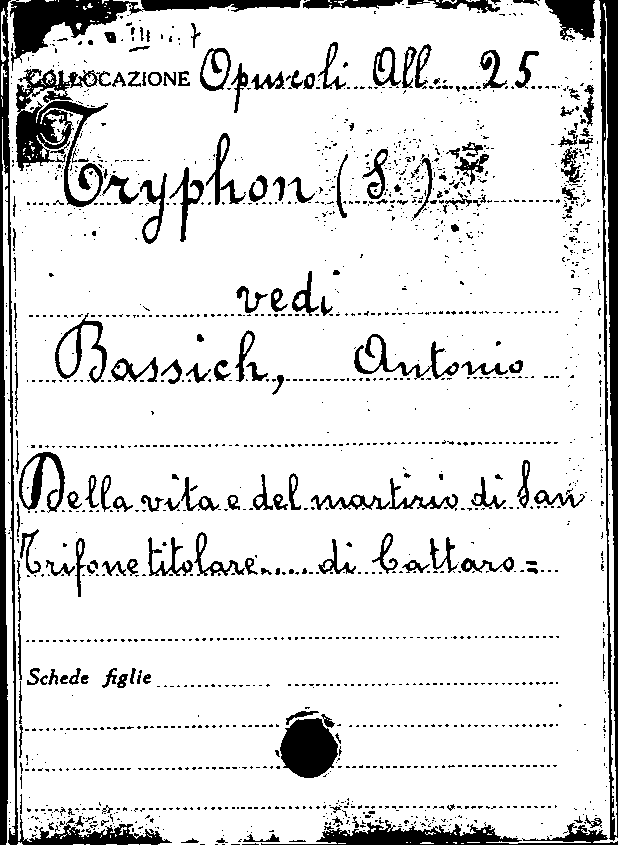 COLLOCAZIONE Opuscoli All. 25
Tryphon (S.)
vedi
Bassich, Antonio
Della vita e del martirio di San
Trifone titolare..... di Cattaro=
Schede figlie